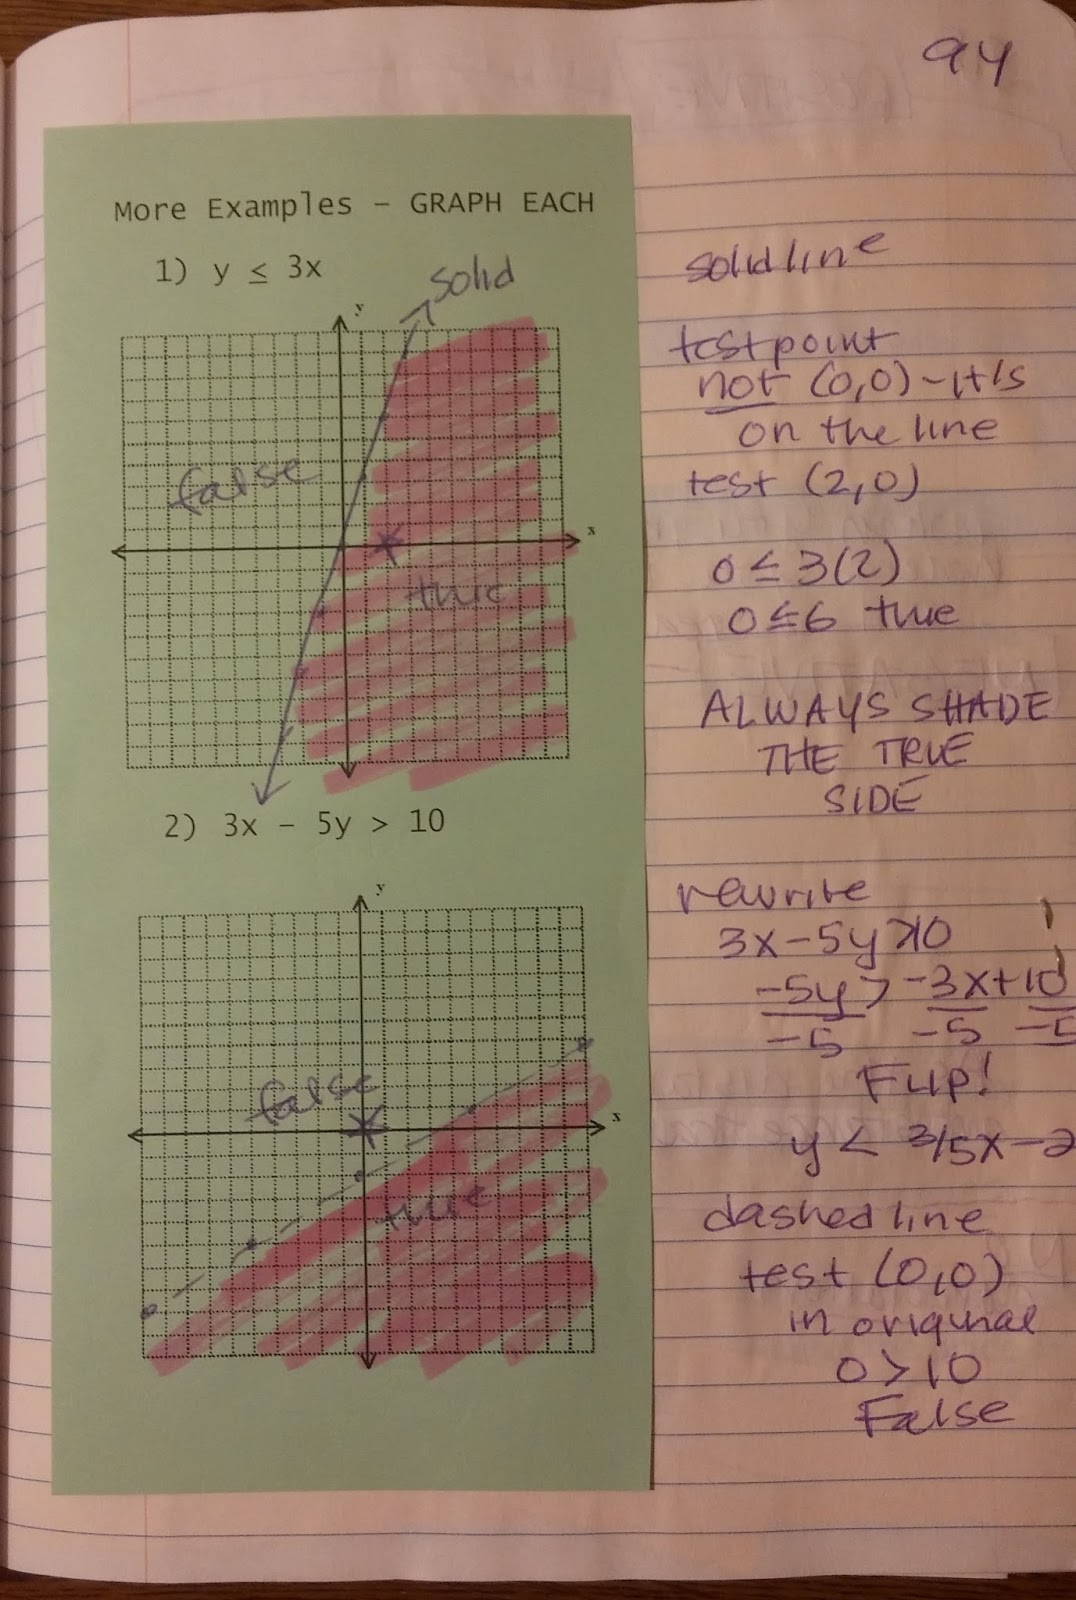 94
More Examples – GRAPH EACH
1) y ≤ 3x
solid
y
false
x
true
solid line
test point
not (0,0) - it's
on the line
test (2,0)
0 ≤ 3(2)
0 ≤ 6 true
ALWAYS SHADE
THE TRUE
SIDE
2) 3x – 5y > 10
y
false
x
true
rewrite
3x - 5y > 10
-5y > -3x + 10
-5 -5 -5
Flip!
y < 3/5x - 2
dashed line
test (0,0)
in original
0 > 10
False